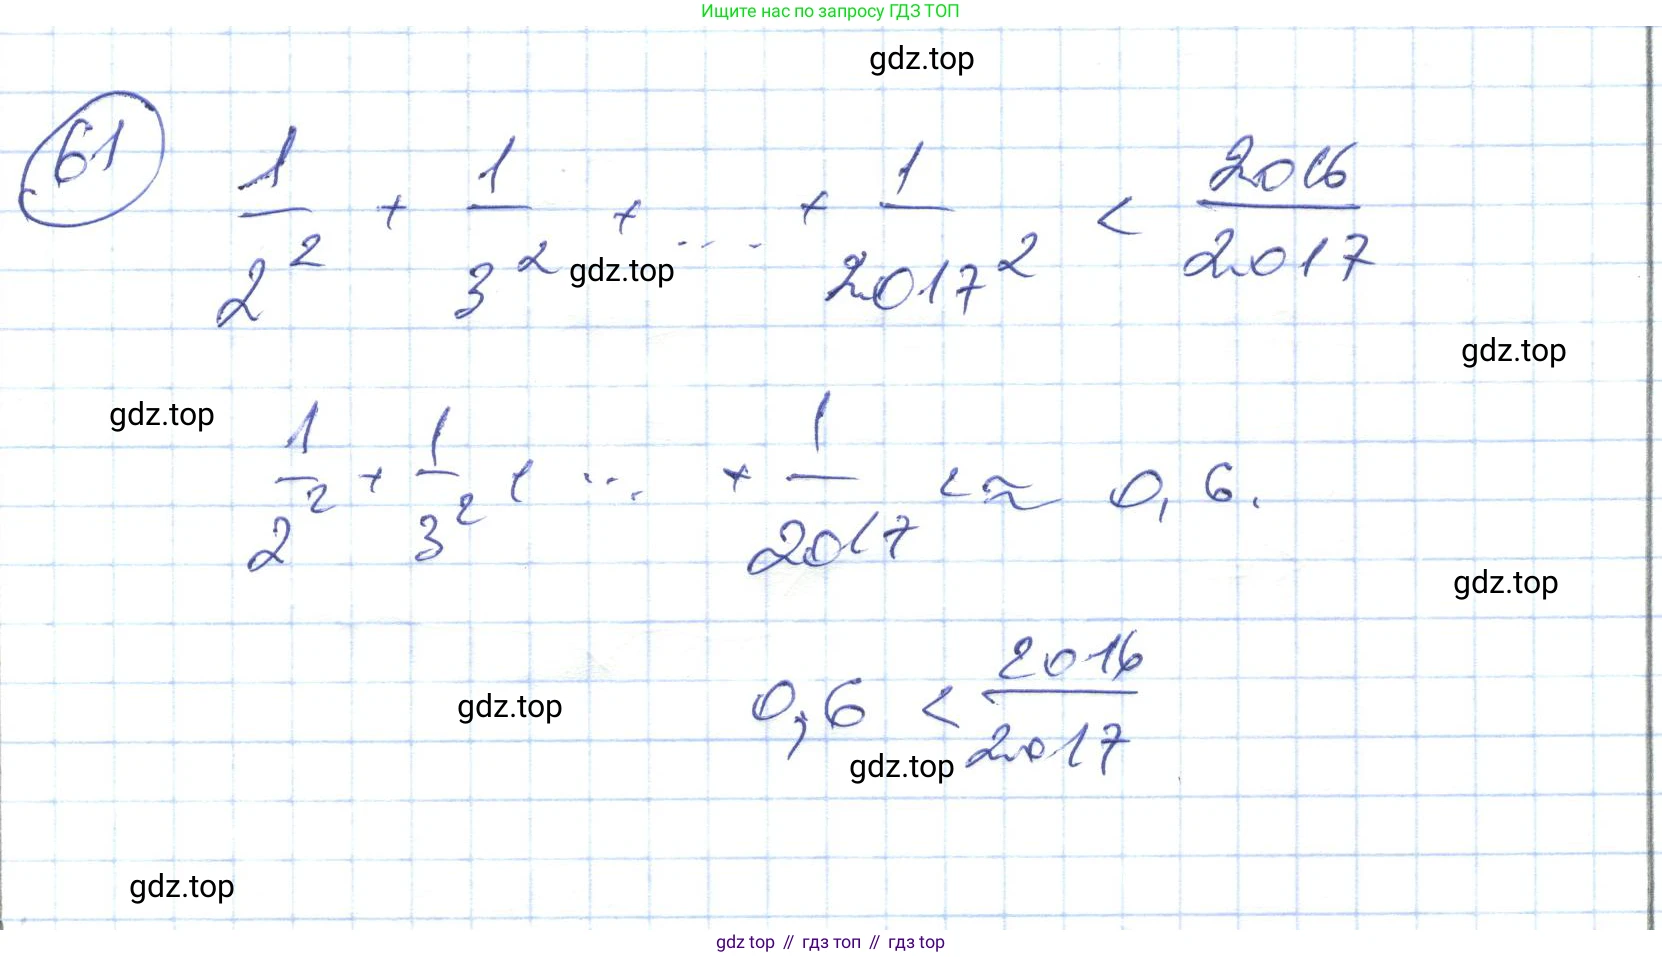 Ищите нас по запросу ГДЗ ТОП
gdz.top
61 1/2² + 1/3² + ... + 1/2017² < 2016/2017
gdz.top
gdz.top
gdz.top
1/2² + 1/3² + ... + 1/2017 < ≈ 0,6.
gdz.top
0,6 < 2016/2017
gdz.top
gdz.top
gdz.top
gdz top // гдз топ // гдз top